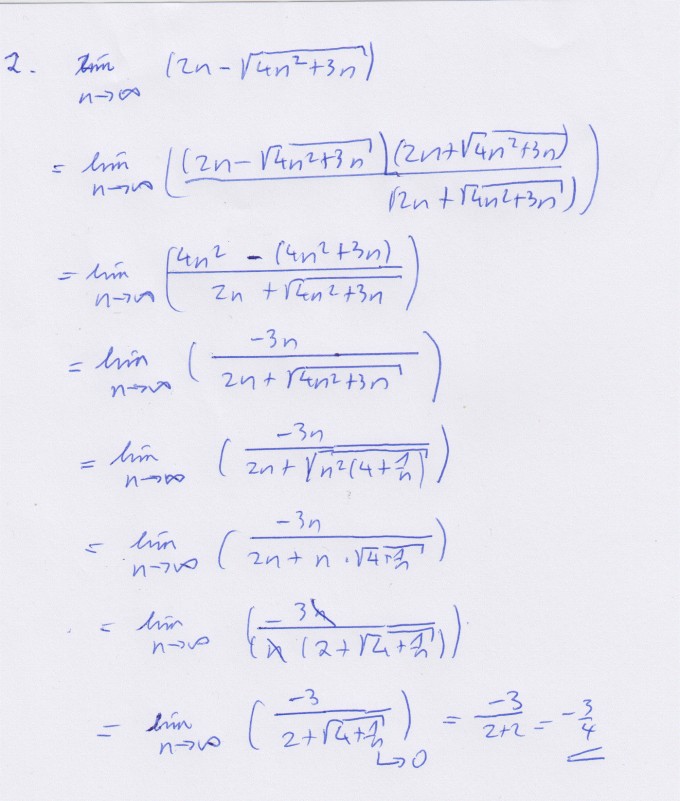 2. lim n→∞ (2n - √(4n²+3n))
= lim n→∞ ( (2n - √(4n²+3n)) (2n + √(4n²+3n)) / (2n + √(4n²+3n)) )
= lim n→∞ ( 4n² - (4n²+3n) / 2n + √(4n²+3n) )
= lim n→∞ ( -3n / 2n + √(4n²+3n) )
= lim n→∞ ( -3n / 2n + √(n²(4 + 1/n)) )
= lim n→∞ ( -3n / 2n + n · √(4 + 1/n) )
= lim n→∞ ( -3n / (n (2 + √(4 + 1/n))) )
= lim n→∞ ( -3 / 2 + √(4 + 1/n) ) = -3 / 2+2 = -3/4
↳ 0